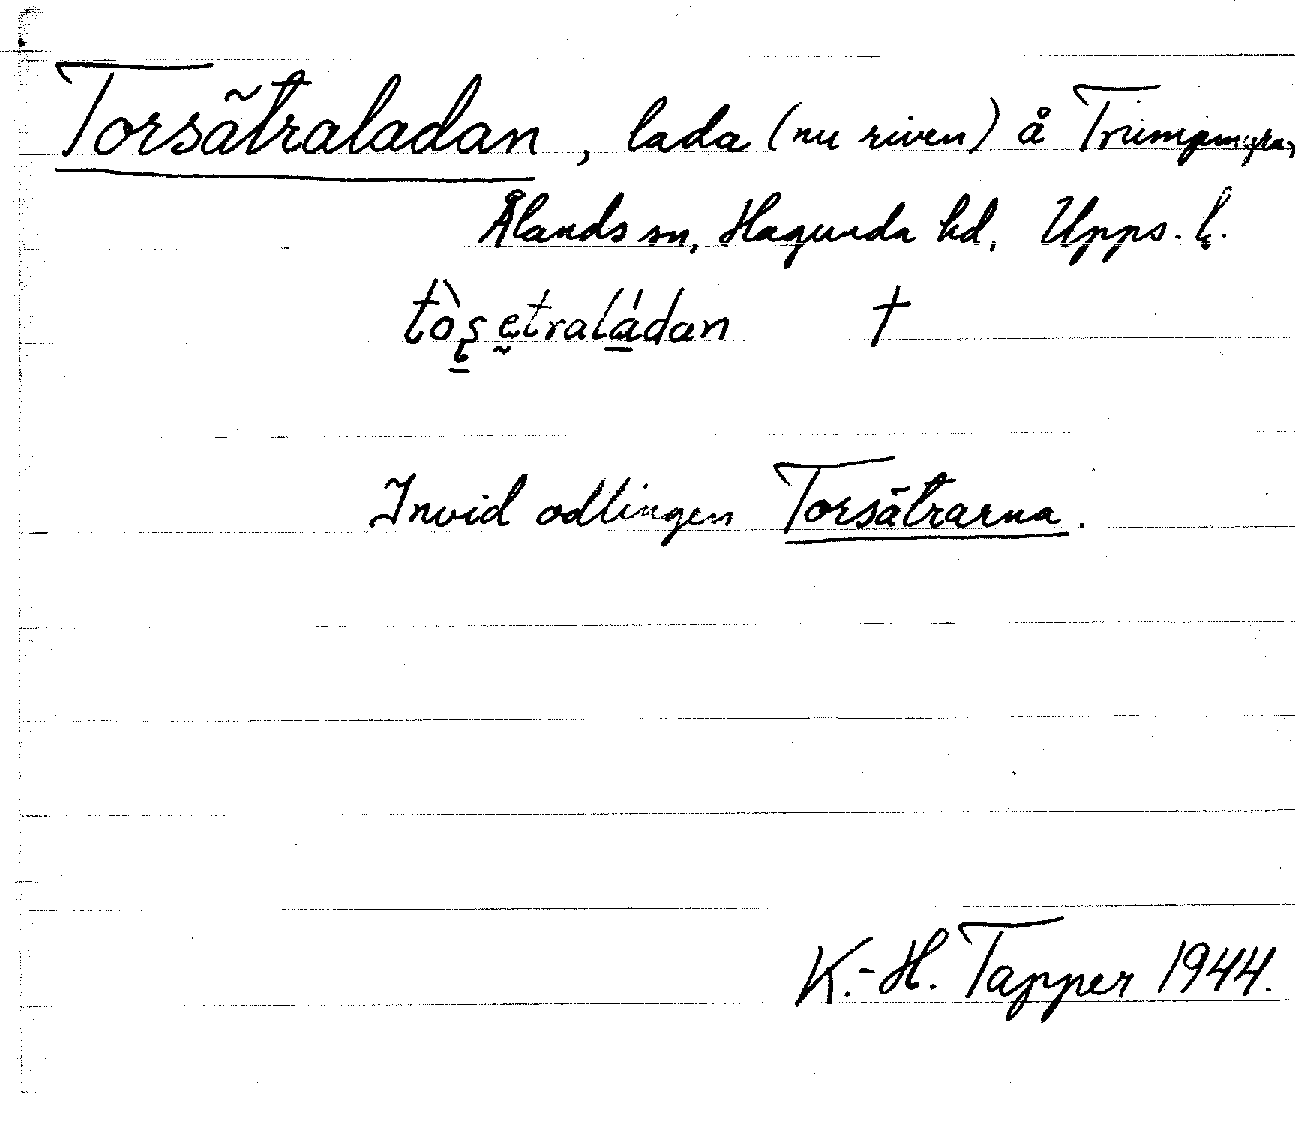 Torsätraladan, lada (nu riven) å Trumpmyran,
Ålands sn, Hagunda hd, Upps. l.
tòṣetraládan †
Invid odlingen Torsätrarna.
K.-H. Tapper 1944.